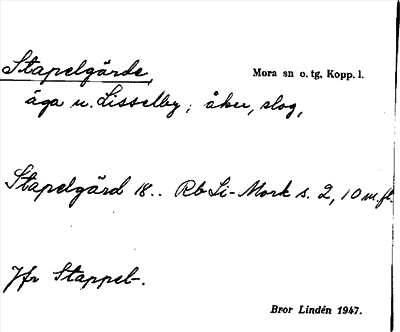 Stapelgärde, Mora sn o. tg, Kopp. l.
äga u. Lisselby; åker, slog,
Stapelgärd 18.. Rb Li-Mork s. 2, 10 m.fl.
Jfr Stappel-.
Bror Lindén 1947.